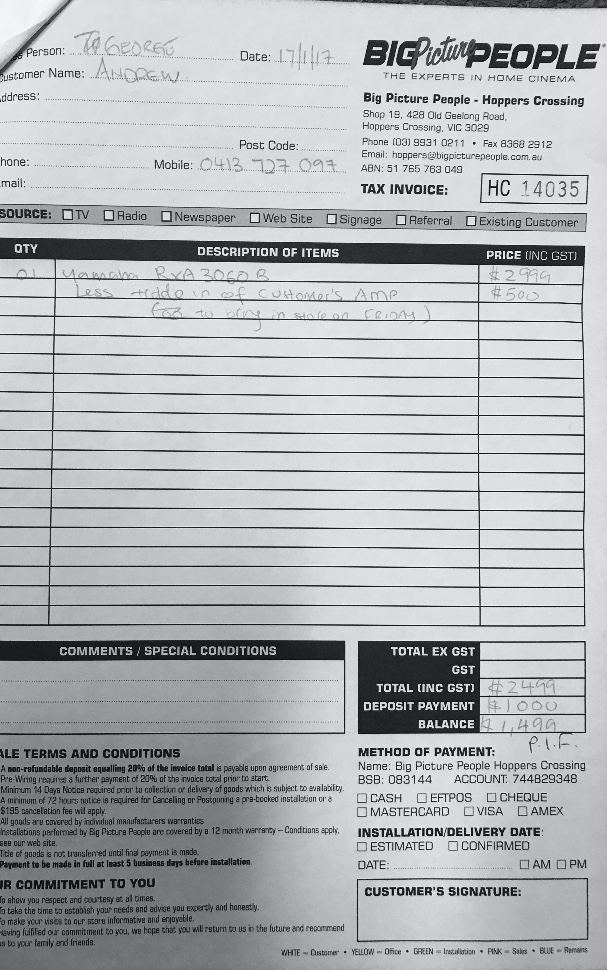 Person: GEORGE
Date: 17/1/17
ustomer Name: ANDREW
ddress:
Post Code:
hone: Mobile: 0413 727 097
mail:
BIG Picture PEOPLE
THE EXPERTS IN HOME CINEMA
Big Picture People - Hoppers Crossing
Shop 19, 428 Old Geelong Road,
Hoppers Crossing, VIC 3029
Phone (03) 9931 0211 • Fax 8368 2912
Email: hoppers@bigpicturepeople.com.au
ABN: 51 765 763 049
TAX INVOICE: HC 14035
SOURCE: TV Radio Newspaper Web Site Signage Referral Existing Customer
QTY DESCRIPTION OF ITEMS PRICE (INC GST)
01 Yamaha RXA3060 B $2999
Less trade in of customer's Amp $500
to bring in store on FRIDAY)
COMMENTS / SPECIAL CONDITIONS
TOTAL EX GST
GST
TOTAL (INC GST) $2499
DEPOSIT PAYMENT $1000
BALANCE $1,499
P.I.F.
ALE TERMS AND CONDITIONS
A non-refundable deposit equalling 20% of the invoice total is payable upon agreement of sale.
Pre-Wiring requires a further payment of 20% of the invoice total prior to start.
Minimum 14 Days Notice required prior to collection or delivery of goods which is subject to availability.
A minimum of 72 hours notice is required for Cancelling or Postponing a pre-booked installation or a
$195 cancellation fee will apply.
All goods are covered by individual manufacturers warranties
Installations performed by Big Picture People are covered by a 12 month warranty – Conditions apply,
see our web site.
Title of goods is not transferred until final payment is made.
Payment to be made in full at least 5 business days before installation.
UR COMMITMENT TO YOU
To show you respect and courtesy at all times.
To take the time to establish your needs and advise you expertly and honestly.
To make your visits to our store informative and enjoyable.
Having fulfilled our commitment to you, we hope that you will return to us in the future and recommend
us to your family and friends.
METHOD OF PAYMENT:
Name: Big Picture People Hoppers Crossing
BSB: 083144 ACCOUNT: 744829348
CASH EFTPOS CHEQUE
MASTERCARD VISA AMEX
INSTALLATION/DELIVERY DATE:
ESTIMATED CONFIRMED
DATE: AM PM
CUSTOMER'S SIGNATURE:
WHITE = Customer • YELLOW = Office • GREEN = Installation • PINK = Sales • BLUE = Remains